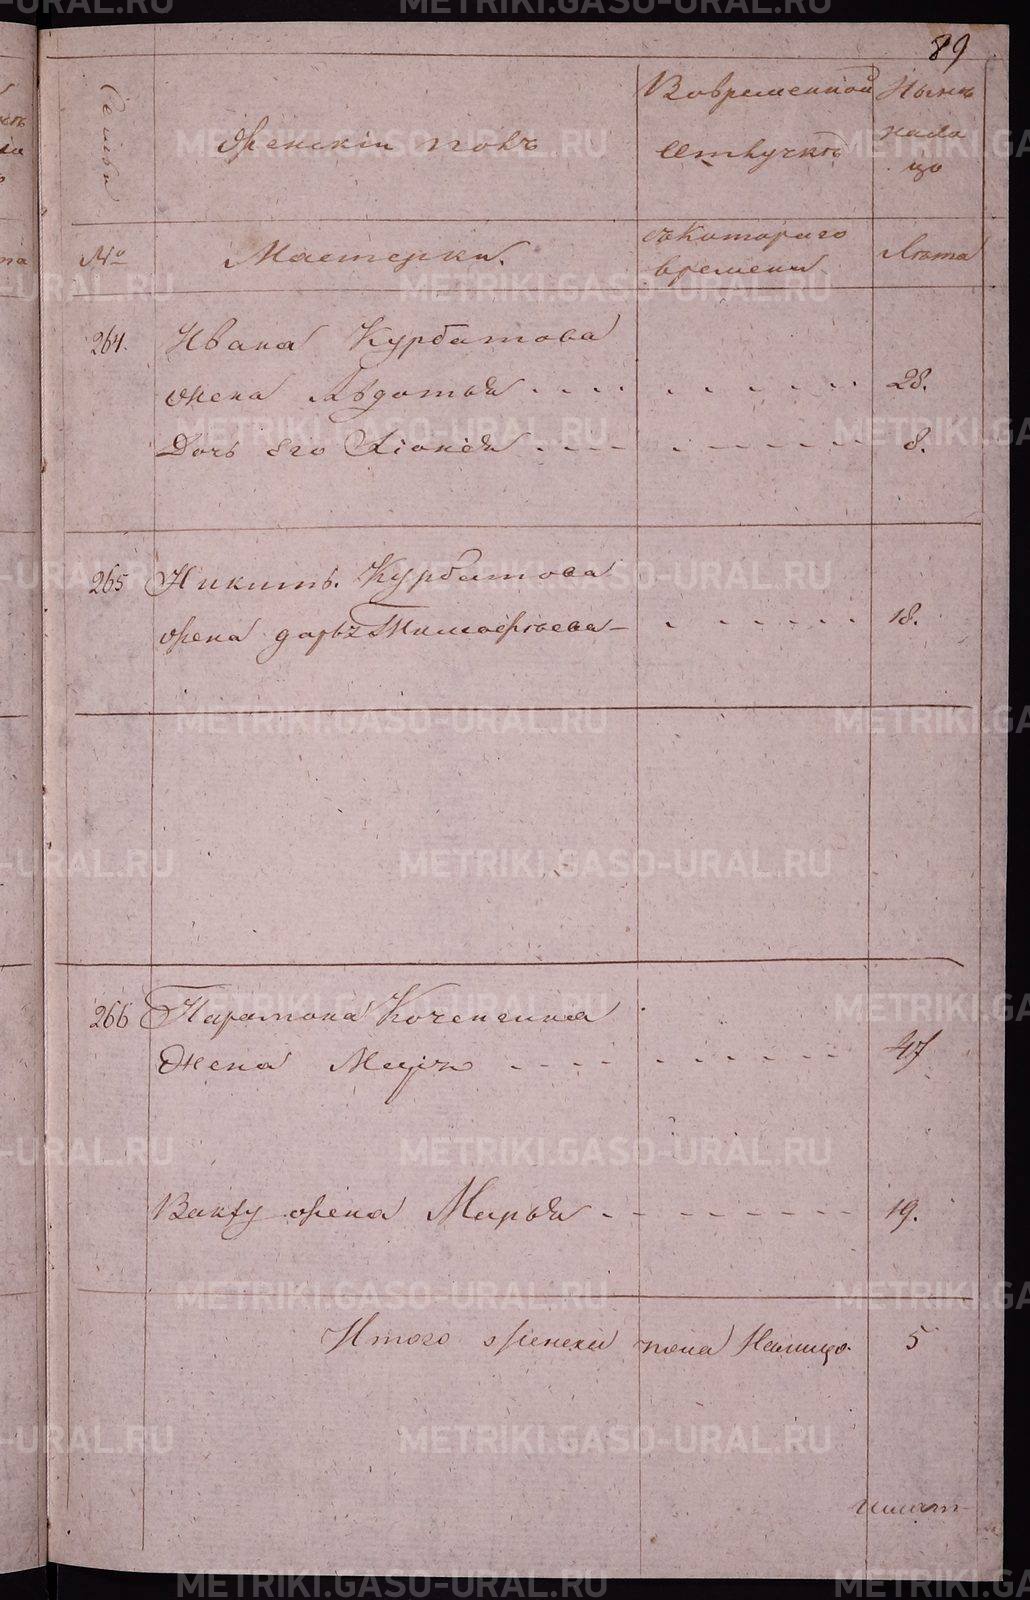 89
Семьи
Женскій полъ
Во временной
отлучкѣ
Нынѣ
нали
цо
№
Мастерки.
съ котораго
времени
Лѣта
264.
Ивана Курбатова
жена Авдотья
28.
Дочь его Хіонія
8.
265
Никиты Курбатова
жена дарья Тимофѣева
18.
266
Парамона Коченгина
Жена
47
жена Марья
19.
Итого женска пола Налицо.
5
METRIKI.GASO-URAL.RU